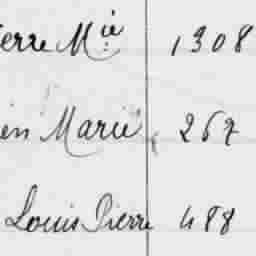 ierre Mie 1308
ien Marie 267
Louis Pierre 488